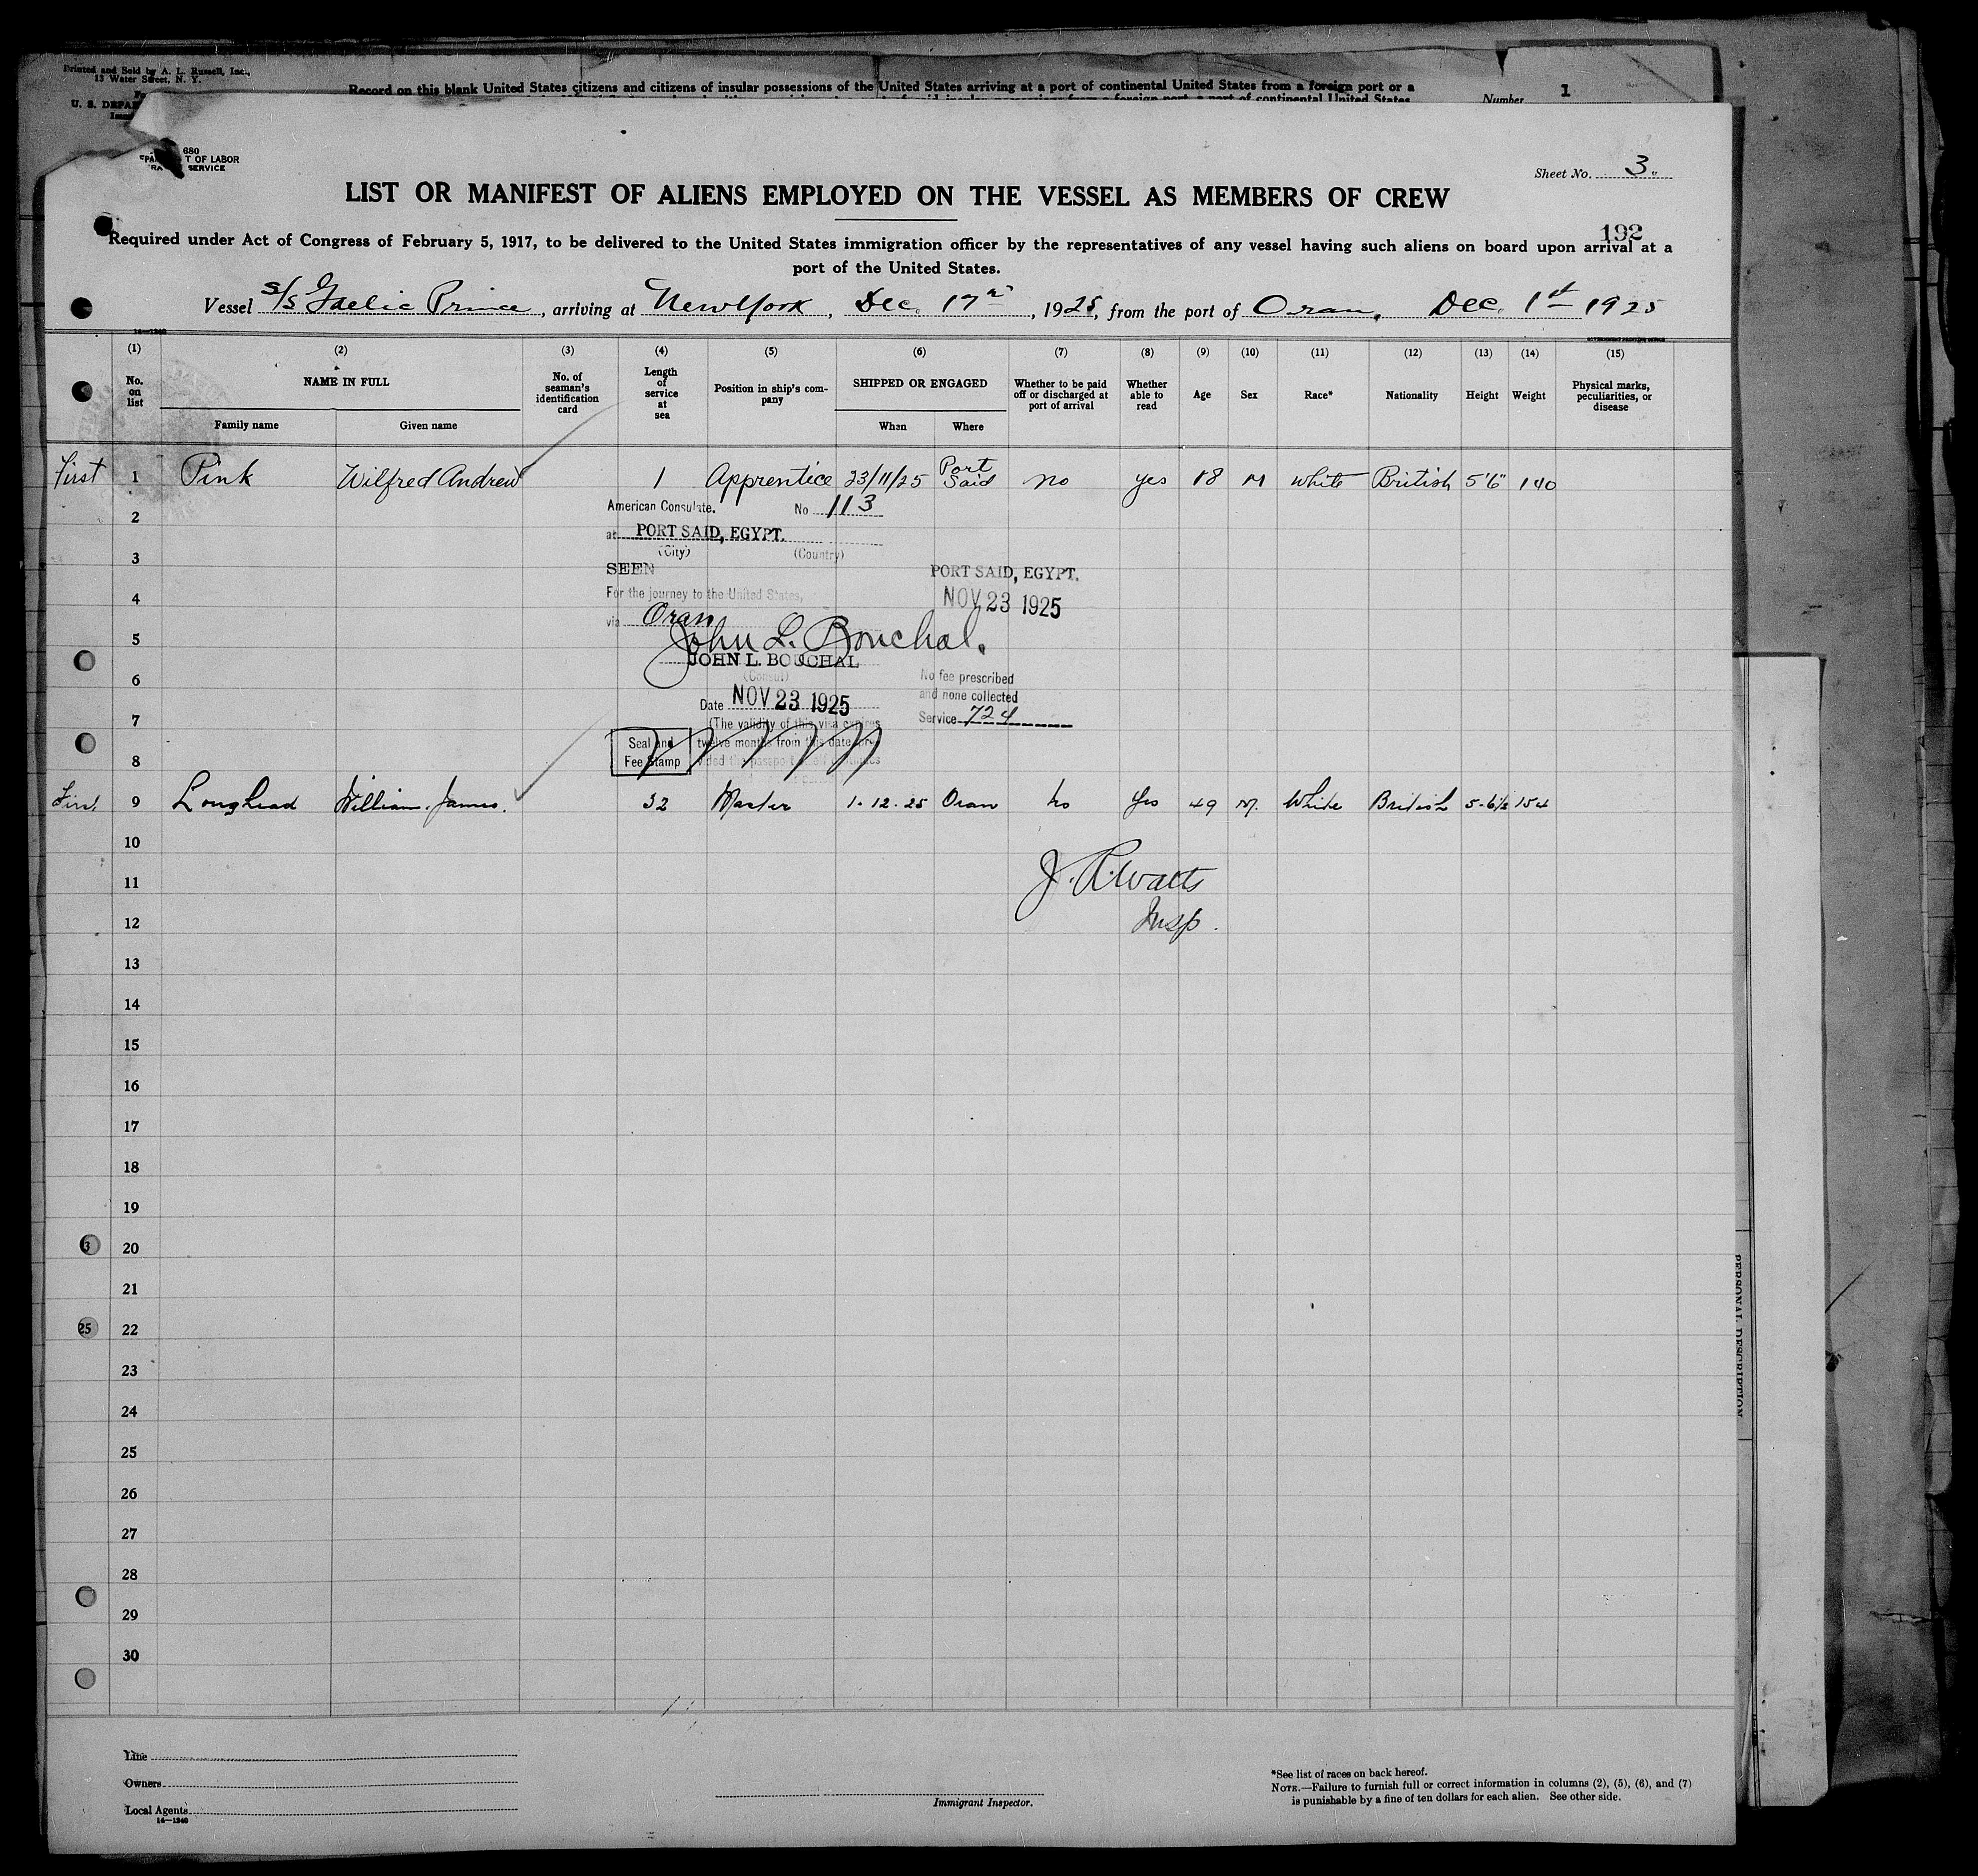 Printed and Sold by A. L. Russell, Inc.,
13 Water Street, N. Y.
U. S. DEPAR
Record on this blank United States citizens and citizens of insular possessions of the United States arriving at a port of continental United States from a foreign port or a
Number 1
680
T OF LABOR
SERVICE
Sheet No. 3.
LIST OR MANIFEST OF ALIENS EMPLOYED ON THE VESSEL AS MEMBERS OF CREW
192
Required under Act of Congress of February 5, 1917, to be delivered to the United States immigration officer by the representatives of any vessel having such aliens on board upon arrival at a
port of the United States.
Vessel S/S Gaelic Prince, arriving at New York, Dec. 17th, 1925, from the port of Oran. Dec. 1st 1925
14—1240
GOVERNMENT PRINTING OFFICE
(1) (2) (3) (4) (5) (6) (7) (8) (9) (10) (11) (12) (13) (14) (15)
No. on list
NAME IN FULL
Family name
Given name
No. of seaman's identification card
Length of service at sea
Position in ship's company
SHIPPED OR ENGAGED
When
Where
Whether to be paid off or discharged at port of arrival
Whether able to read
Age
Sex
Race*
Nationality
Height
Weight
Physical marks, peculiarities, or disease
First 1 Pink Wilfred Andrew 1 Apprentice 23/11/25 Port Said no yes 18 M white British 5'6" 140
American Consulate. No 113
2
at PORT SAID, EGYPT.
(City) (Country)
3
SEEN PORT SAID, EGYPT.
For the journey to the United States,
4 NOV 23 1925
via Oran
5 John L. Bouchal.
JOHN L. BOUCHAL
(Consul) No fee prescribed
6
and none collected
Date NOV 23 1925
Service 724
7 (The validity of this visa expires
Seal and twelve months from this date pro-
Fee Stamp vided the passport
8
First 9 Longhead William James. 32 Master 1.12.25 Oran no Yes 49 M. White British 5-6½ 154
10
11 J. R. Watts
12 Insp.
13
14
15
16
17
18
19
3 20
21
25 22
23
24
25
26
27
28
29
30
PERSONAL DESCRIPTION
Line
Owners
Local Agents
14—1240
Immigrant Inspector.
*See list of races on back hereof.
NOTE.—Failure to furnish full or correct information in columns (2), (5), (6), and (7)
is punishable by a fine of ten dollars for each alien. See other side.